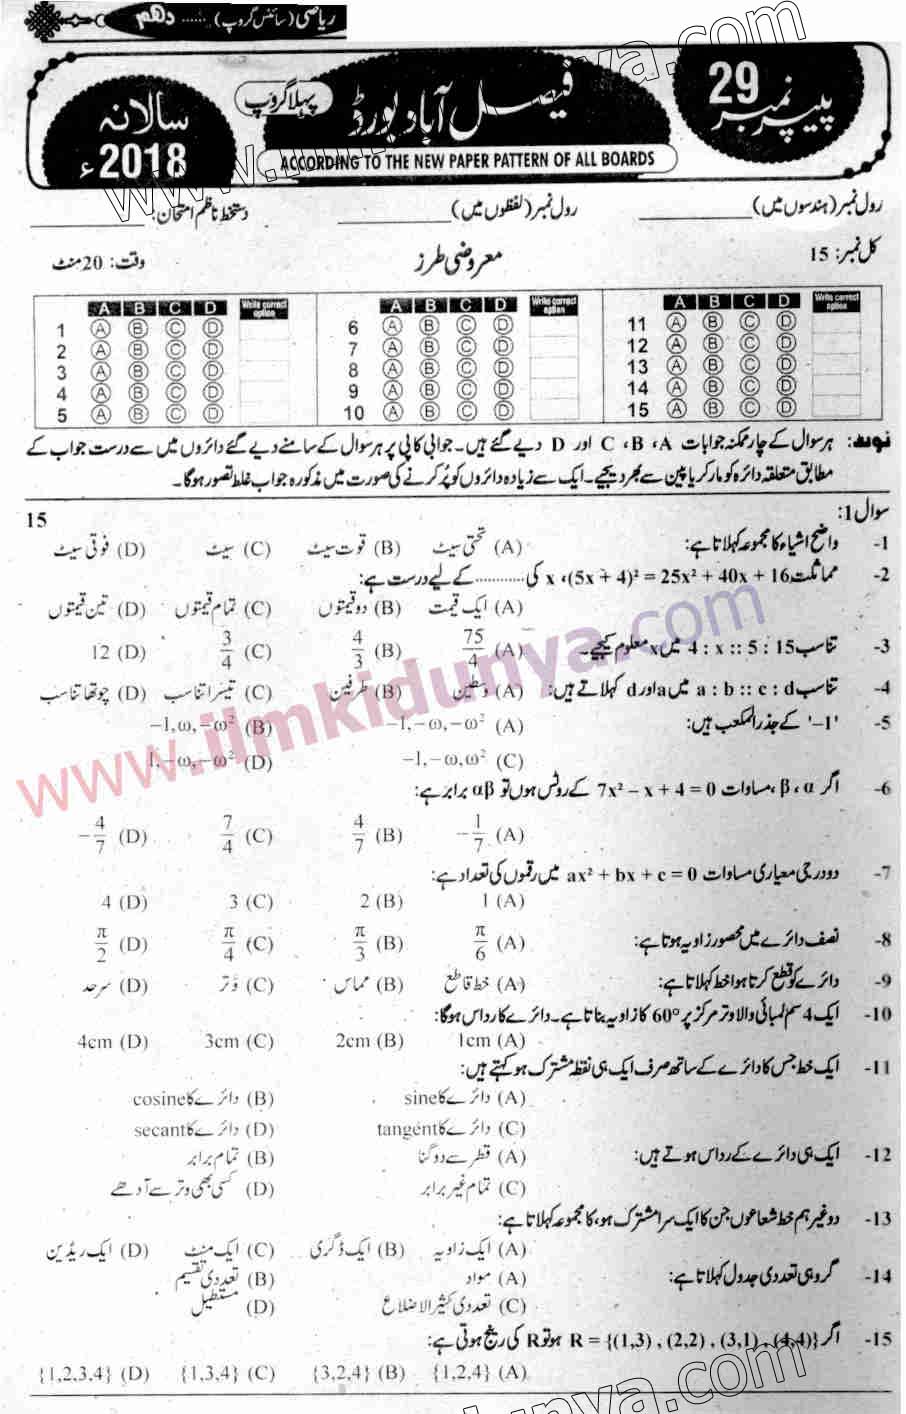 ریاضی (سائنس گروپ) ...... دہم
پیپر نمبر 29
فیصل آباد بورڈ
پہلا گروپ
سالانہ 2018ء
ACCORDING TO THE NEW PAPER PATTERN OF ALL BOARDS
رول نمبر (ہندسوں میں) ________ رول نمبر (لفظوں میں) ________ دستخط ناظم امتحان: ________
کل نمبر: 15 معروضی طرز وقت: 20 منٹ
A B C D Write correct option A B C D Write correct option A B C D Write correct option
1 A B C D 6 A B C D 11 A B C D
2 A B C D 7 A B C D 12 A B C D
3 A B C D 8 A B C D 13 A B C D
4 A B C D 9 A B C D 14 A B C D
5 A B C D 10 A B C D 15 A B C D
نوٹ: ہر سوال کے چار ممکنہ جوابات A، B، C اور D دیے گئے ہیں۔ جوابی کاپی پر ہر سوال کے سامنے دیے گئے دائروں میں سے درست جواب کے
مطابق متعلقہ دائرہ کو مارکر یا پین سے بھر دیجیے۔ ایک سے زیادہ دائروں کو پُر کرنے کی صورت میں مذکورہ جواب غلط تصور ہوگا۔
سوال 1: 15
1- واضح اشیاء کا مجموعہ کہلاتا ہے: (A) تحتی سیٹ (B) قوت سیٹ (C) سیٹ (D) فوقی سیٹ
2- مماثلت (5x + 4)² = 25x² + 40x + 16، x کی ............ کے لیے درست ہے:
(A) ایک قیمت (B) دو قیمتوں (C) تمام قیمتوں (D) تین قیمتوں
3- تناسب 4 : x :: 5 : 15 میں x معلوم کیجیے۔ (A) 75/4 (B) 4/3 (C) 3/4 (D) 12
4- تناسب a : b :: c : d میں a اور d کہلاتے ہیں: (A) وسطین (B) طرفین (C) تیسرا تناسب (D) چوتھا تناسب
5- '-1' کے جذر المکعب ہیں: (A) -1, -ω, -ω² (B) -1, ω, -ω²
(C) -1, -ω, ω² (D) 1, -ω, -ω²
6- اگر β، α، مساوات 7x² – x + 4 = 0 کے روٹس ہوں تو αβ برابر ہے:
(A) -1/7 (B) 4/7 (C) 7/4 (D) -4/7
7- دو درجی معیاری مساوات ax² + bx + c = 0 میں رقموں کی تعداد ہے:
(A) 1 (B) 2 (C) 3 (D) 4
8- نصف دائرے میں محصور زاویہ ہوتا ہے: (A) π/6 (B) π/3 (C) π/4 (D) π/2
9- دائرے کو قطع کرتا ہوا خط کہلاتا ہے: (A) خط قاطع (B) مماس (C) وَتر (D) سرحد
10- ایک 4 سم لمبائی والا وتر مرکز پر 60° کا زاویہ بناتا ہے۔ دائرے کا رداس ہوگا:
(A) 1cm (B) 2cm (C) 3cm (D) 4cm
11- ایک خط جس کا دائرے کے ساتھ صرف ایک ہی نقطہ مشترک ہو کہتے ہیں:
(A) دائرے کا sine (B) دائرے کا cosine
(C) دائرے کا tangent (D) دائرے کا secant
12- ایک ہی دائرے کے رداس ہوتے ہیں: (A) قطر سے دوگنا (B) تمام برابر
(C) تمام غیر برابر (D) کسی بھی وتر سے آدھے
13- دو غیر ہم خط شعاعوں جن کا ایک سرا مشترک ہو، کا مجموعہ کہلاتا ہے:
(A) ایک زاویہ (B) ایک ڈگری (C) ایک منٹ (D) ایک ریڈین
14- گروہی تعددی جدول کہلاتا ہے: (A) مواد (B) تعددی تقسیم
(C) تعددی کثیر الاضلاع (D) مستطیل
15- اگر R = {(1,3), (2,2), (3,1), (4,4)} ہو تو R کی رینج ہوتی ہے:
(A) {1,2,4} (B) {3,2,4} (C) {1,3,4} (D) {1,2,3,4}
www.ilmkidunya.com